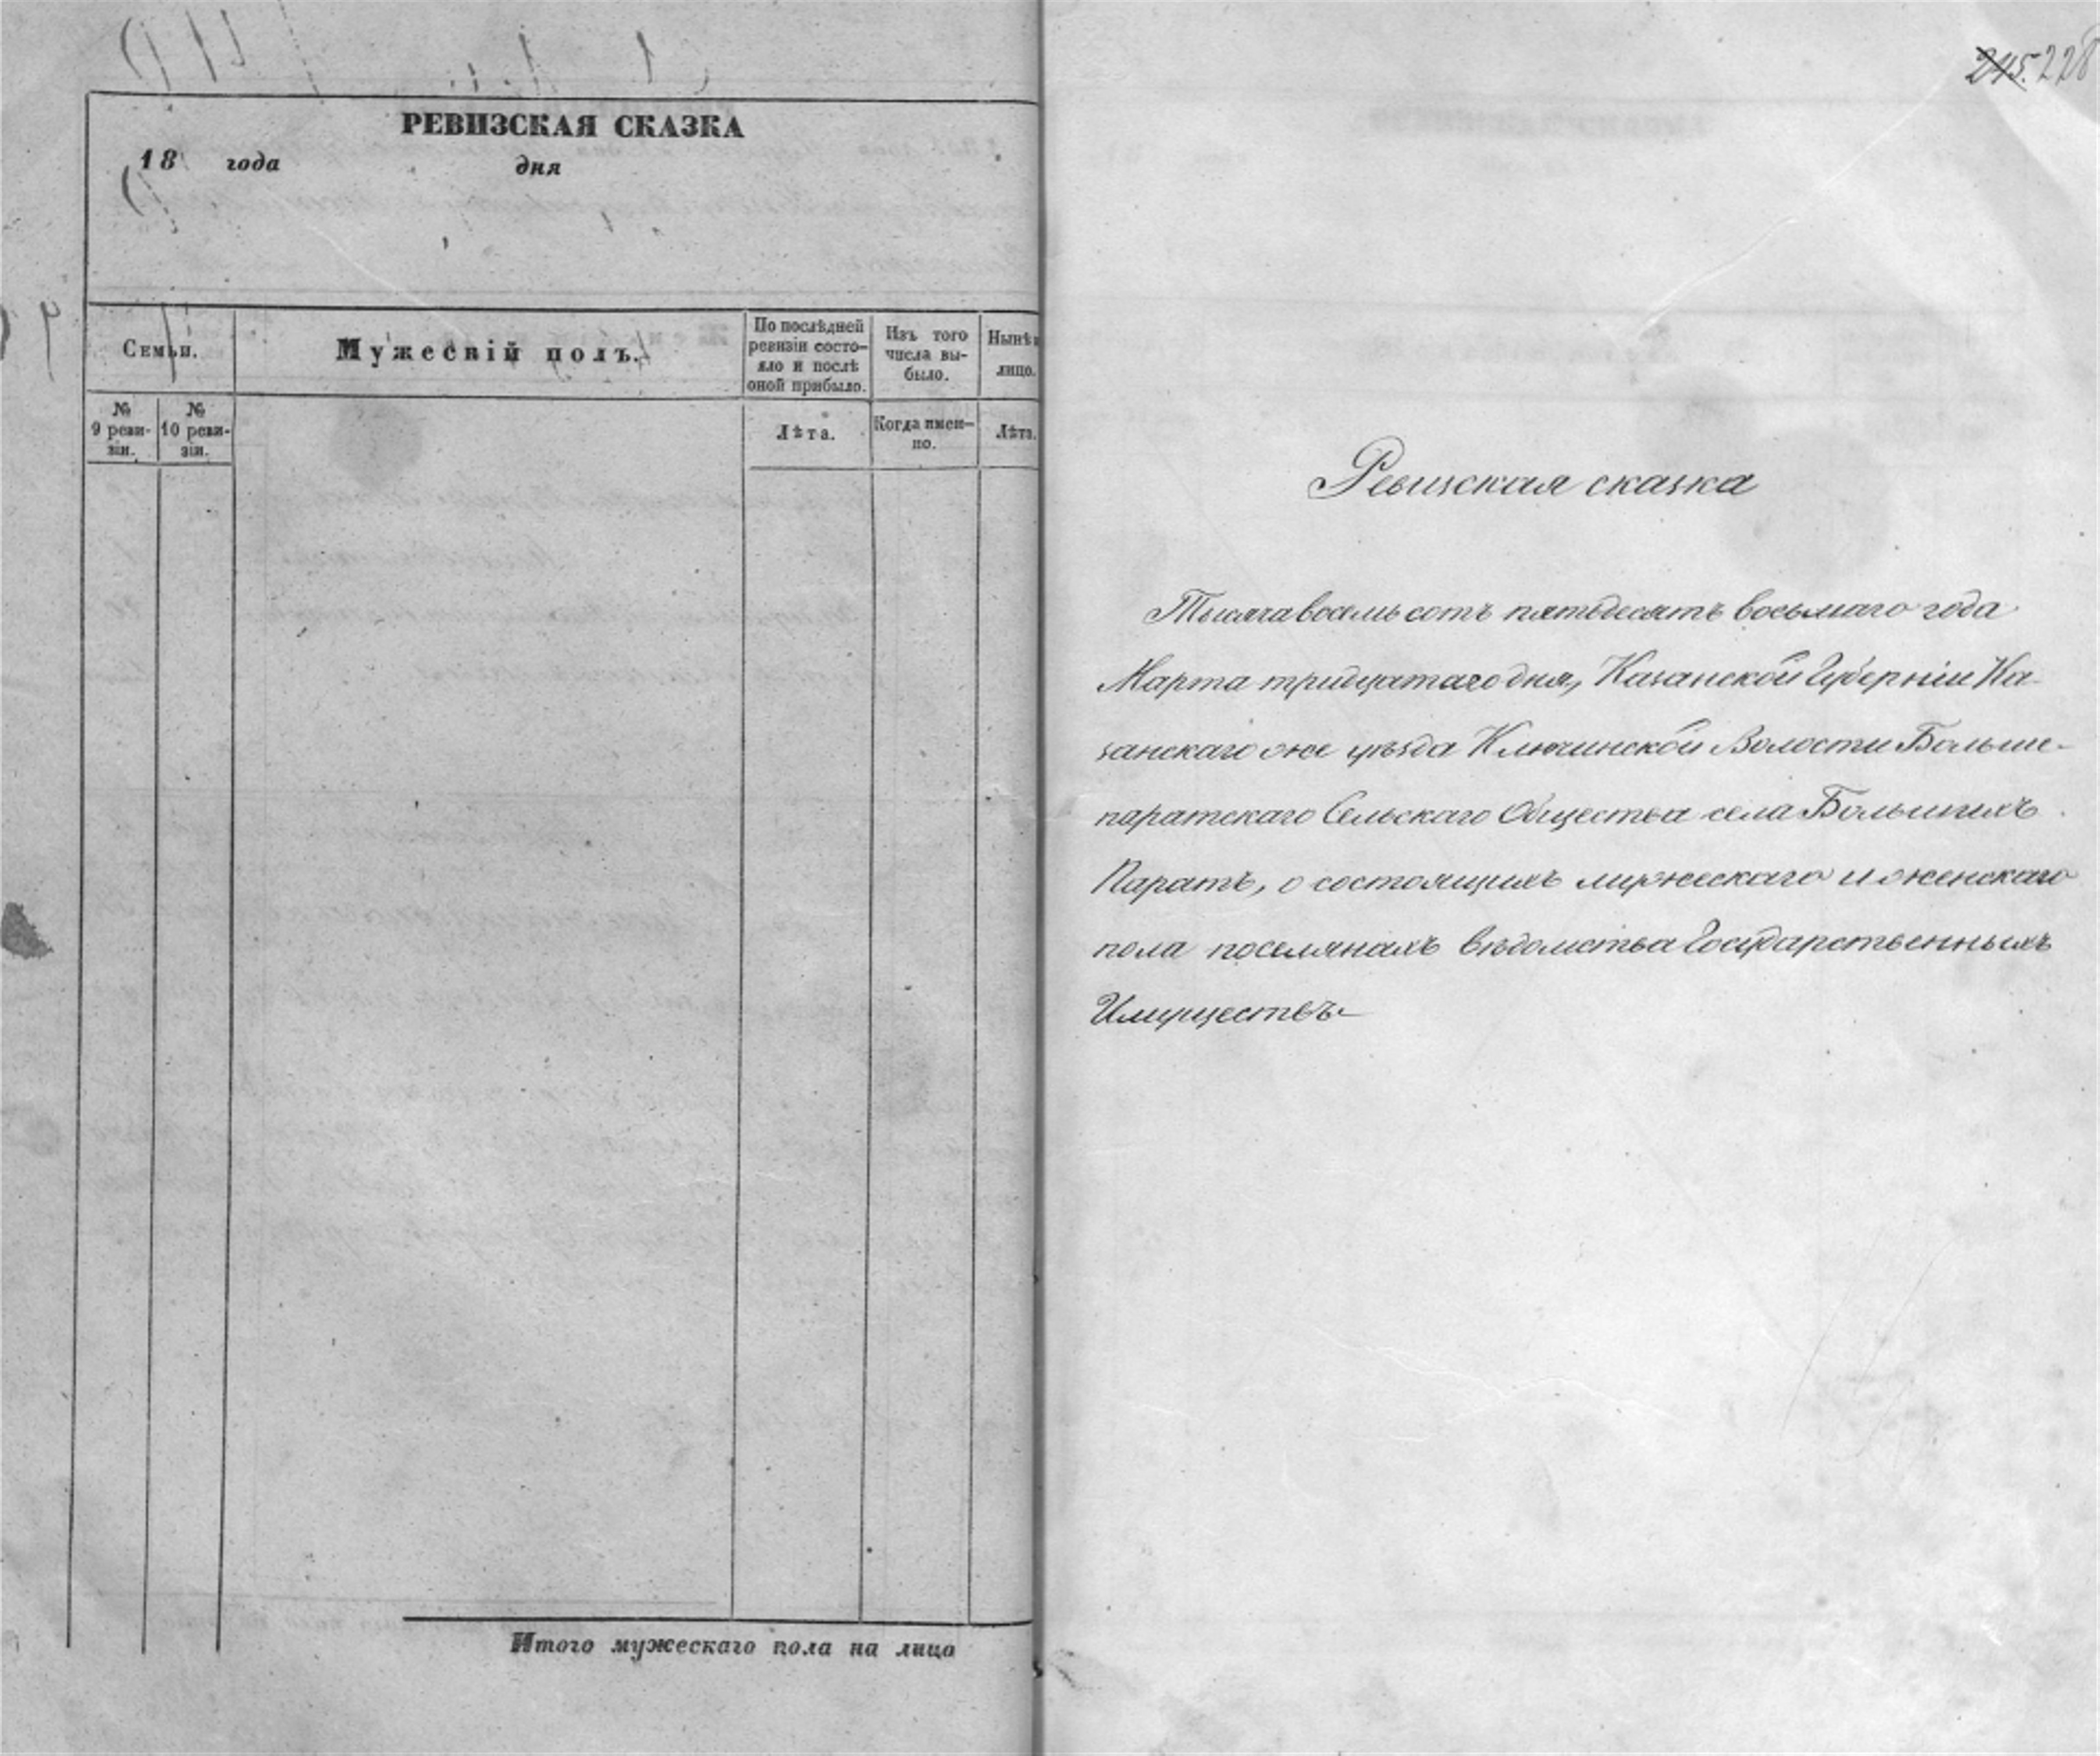 РЕВИЗСКАЯ СКАЗКА
18 года дня
Семьи.
Мужескій полъ.
По послѣдней
ревизіи состо-
яло и послѣ
оной прибыло.
Изъ того
числа вы-
было.
Нынѣ
лицо.
№
9 реви-
зіи.
№
10 реви-
зіи.
Лѣта.
Когда имен-
но.
Лѣта.
Итого мужескаго пола на лицо
245. 228
Ревизская сказка
Тысяча восемь сотъ пятьдесятъ восьмаго года
Марта тридцатаго дня, Казанской Губерніи Ка-
занскаго же уѣзда Ключинской Волости Больше-
паратскаго Сельскаго Общества села Большихъ
Паратъ, о состоящихъ мужескаго и женскаго
пола поселянахъ вѣдомства Государственныхъ
Имуществъ